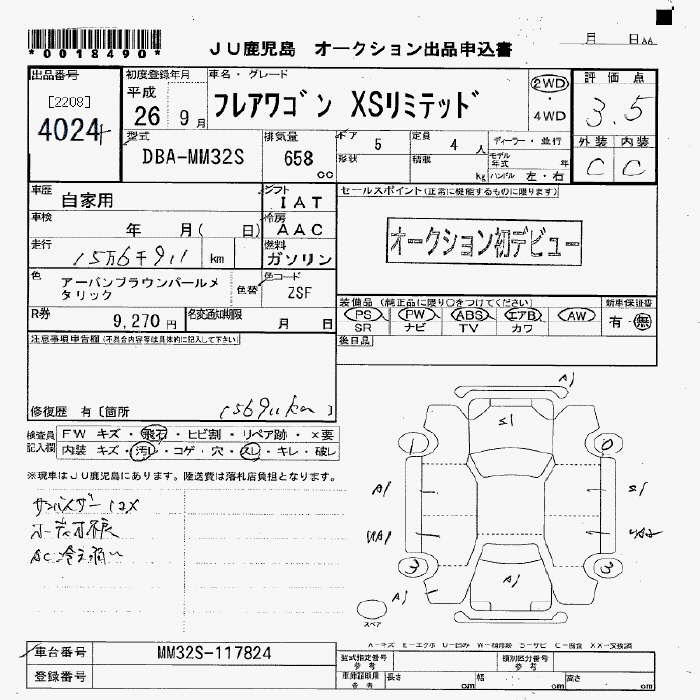 *0018490*
JU鹿児島 オークション出品申込書
月 日
出品番号
[2208]
4024
初度登録年月
平成
26 9月
車名・グレード
フレアワゴン XSリミテッド
2WD
・
4WD
評価点
3.5
外装 内装
C C
型式
DBA-MM32S
排気量
658
cc
ドア 5
形状
定員 4 人
積載 kg
ディーラー・並行
モデル年式 年
ハンドル 左・右
車歴
自家用
シフト
IAT
車検
年 月( 日)
冷房
AAC
走行
15万6千911 km
燃料
ガソリン
色
アーバンブラウンパールメタリック
色替
色コード
ZSF
R券
9,270円
名変通知期限
月 日
セールスポイント(正常に機能するものに限ります)
オークション初デビュー
装備品(純正品に限り○をつけてください)
PS PW ABS エアB AW
SR ナビ TV カワ
新車保証書
有・無
後日品
注意事項申告欄(不具合内容等は具体的に記入して下さい)
修復歴 有〔箇所 156911km 〕
検査員記入欄
FW キズ・飛石・ヒビ割・リペア跡・×要
内装 キズ・汚レ・コゲ・穴・スレ・キレ・破レ
※現車はJU鹿児島にあります。陸送費は落札店負担となります。
AC冷え弱い
A1
S1
1 0
A1 S1
3 3
A1
A1
スペア
A-キズ E-エクボ U-凹み W-補修跡 S-サビ C-腐食 XX-交換済
車台番号
MM32S-117824
登録番号
型式指定番号
参考
類別区分番号
参考
車庫証明用
参考
長さ cm 幅 cm 高さ cm